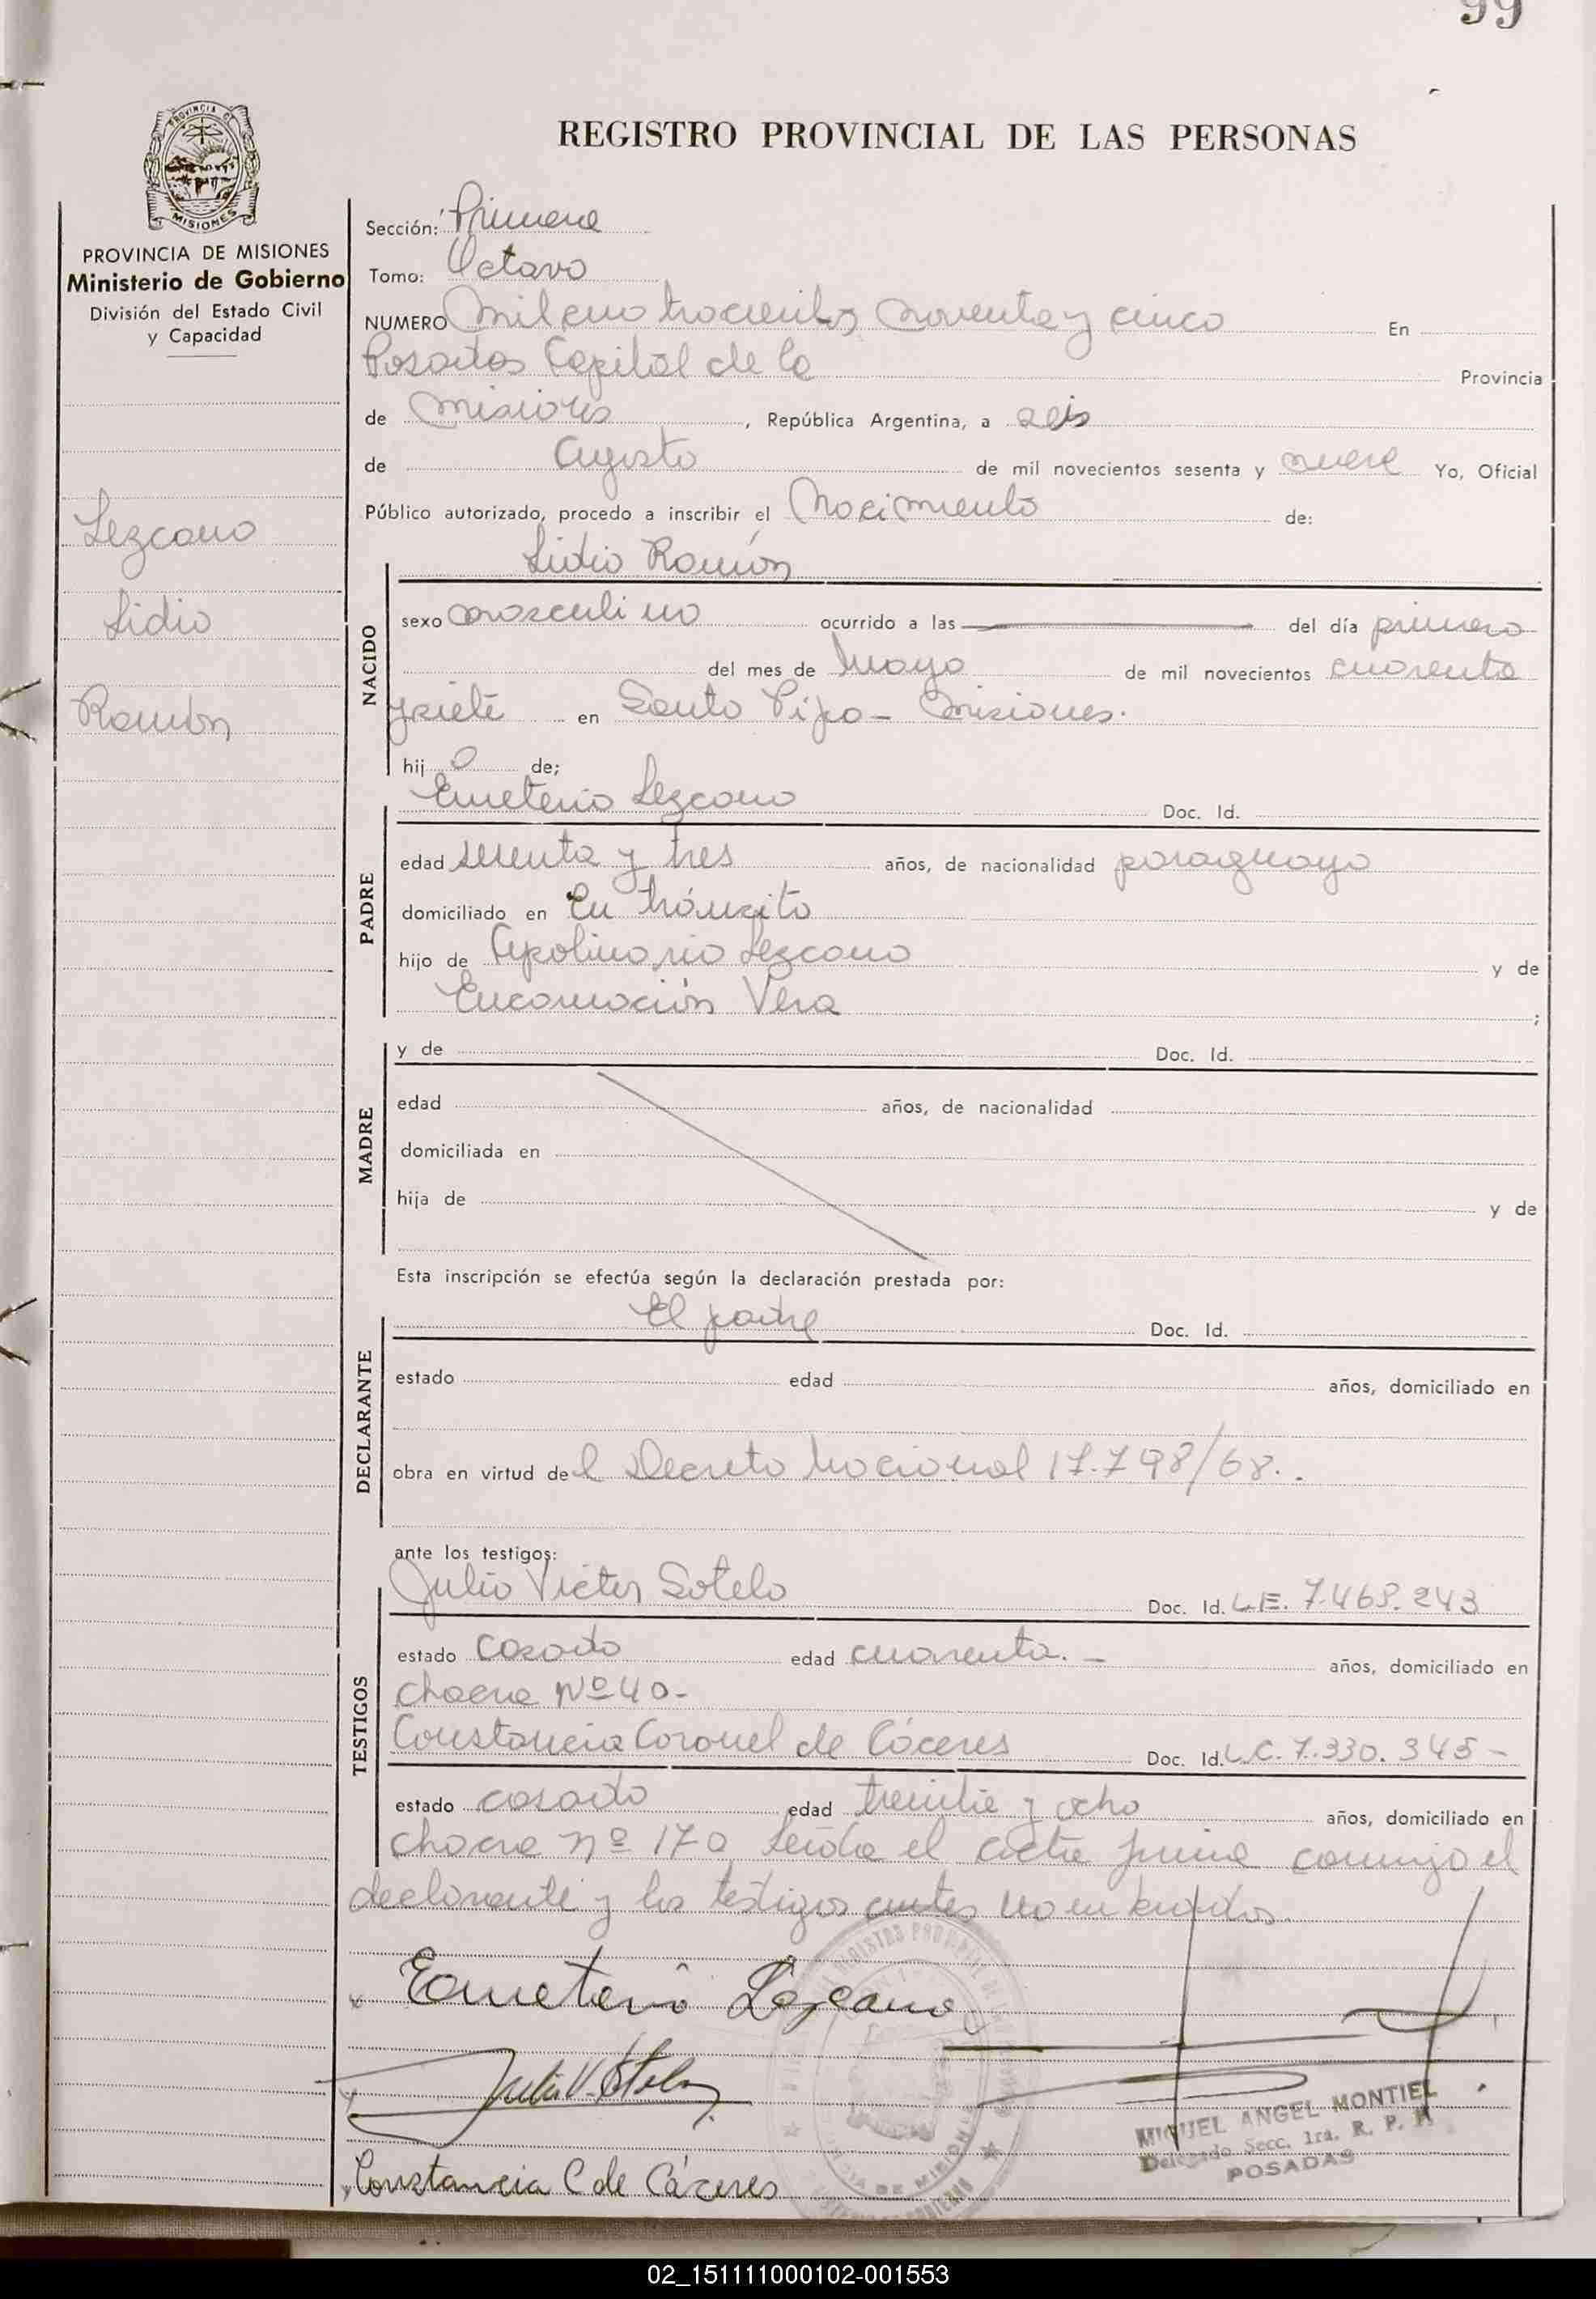 99
PROVINCIA DE
MISIONES
REGISTRO PROVINCIAL DE LAS PERSONAS
PROVINCIA DE MISIONES
Ministerio de Gobierno
División del Estado Civil
y Capacidad
Lezcano
Lidio
Ramón
Sección: Primera
Tomo: Octavo
NUMERO Mil cuatrocientos noventa y cinco En
Posadas Capital de la Provincia
de Misiones, República Argentina, a seis
de Agosto de mil novecientos sesenta y nueve Yo, Oficial
Público autorizado, procedo a inscribir el Nacimiento de:
Lidio Ramón
NACIDO
sexo masculino ocurrido a las del día primero
del mes de Mayo de mil novecientos cuarenta
y siete en Santo Pipo - Misiones.
hij o de;
Emeterio Lezcano Doc. Id.
PADRE
edad sesenta y tres años, de nacionalidad paraguayo
domiciliado en En tránsito
hijo de Apolinario Lezcano y de
Encarnación Vera ;
MADRE
y de Doc. Id.
edad años, de nacionalidad
domiciliada en
hija de y de
Esta inscripción se efectúa según la declaración prestada por:
El padre Doc. Id.
DECLARANTE
estado edad años, domiciliado en
obra en virtud de l Decreto Nacional 17.798/68.
ante los testigos:
Julio Victor Sotelo Doc. Id. L.E. 7.468.243
TESTIGOS
estado casado edad cuarenta. - años, domiciliado en
chacra Nº 40-
Constancia Coronel de Cáceres Doc. Id. L.C. 7.330.345 -
estado casado edad treinta y ocho años, domiciliado en
chacra nº 170 Leída el acta firma conmigo el
declarante y los testigos antes nombrados.
Emeterio Lezcano
Julio V. Sotelo
MIGUEL ANGEL MONTIEL
Delegado Secc. 1ra. R. P. P.
POSADAS
Constancia C de Cáceres
02_151111000102-001553